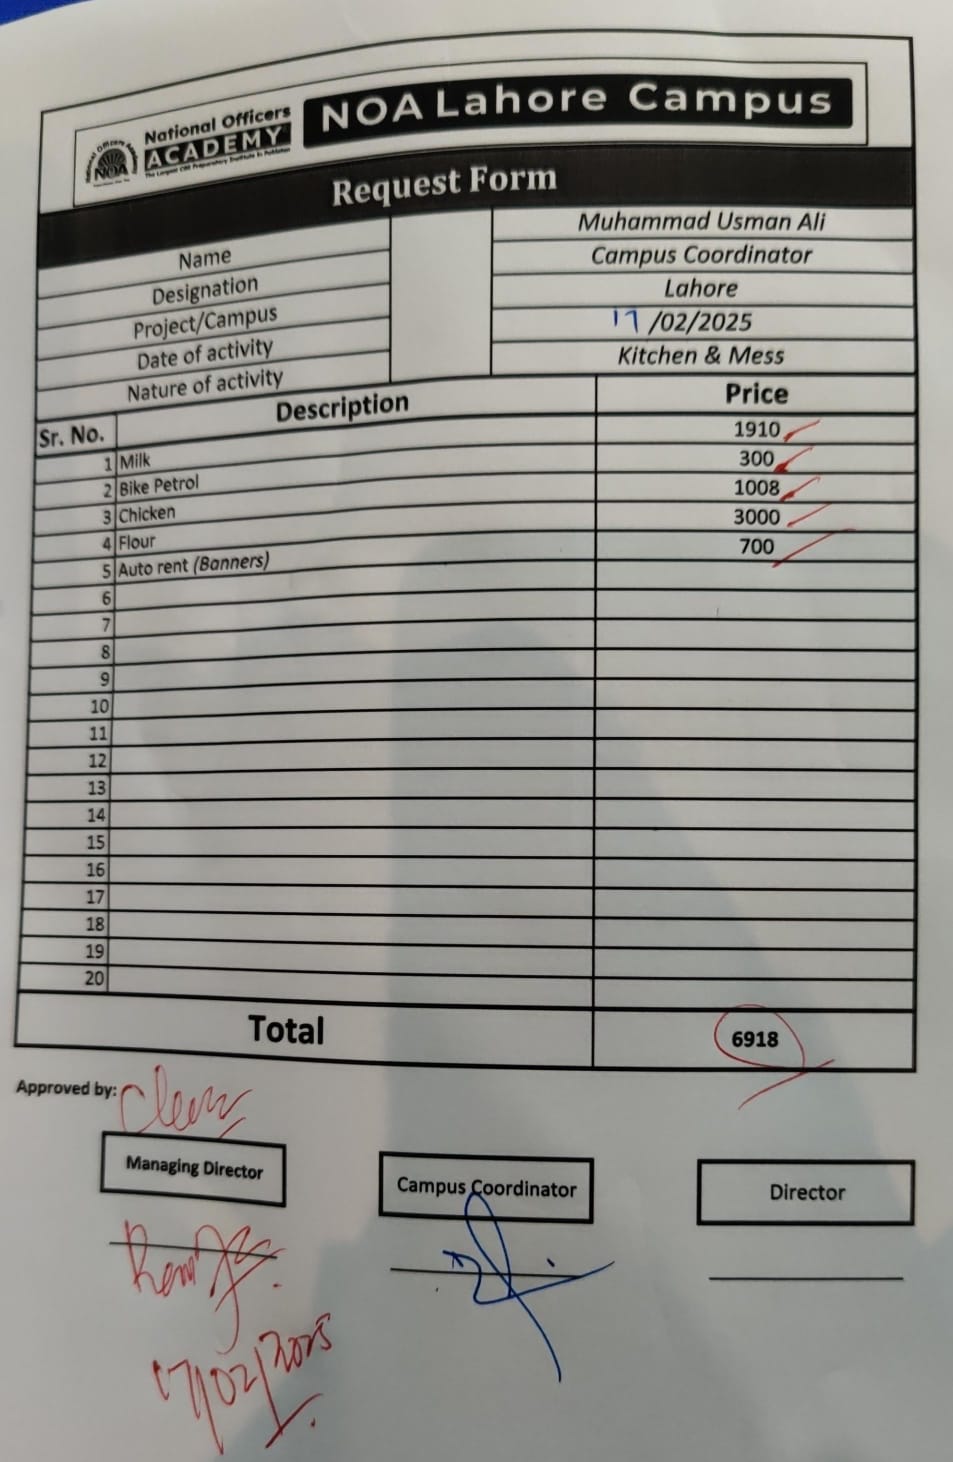 National Officers
ACADEMY
The Largest CSS Preparatory Institute in Pakistan
NOA
NOA Lahore Campus
Request Form
Name Muhammad Usman Ali
Designation Campus Coordinator
Project/Campus Lahore
Date of activity 17/02/2025
Nature of activity Kitchen & Mess
Sr. No. Description Price
1 Milk 1910
2 Bike Petrol 300
3 Chicken 1008
4 Flour 3000
5 Auto rent (Banners) 700
6
7
8
9
10
11
12
13
14
15
16
17
18
19
20
Total 6918
Approved by:
Managing Director Campus Coordinator Director
/02/2025